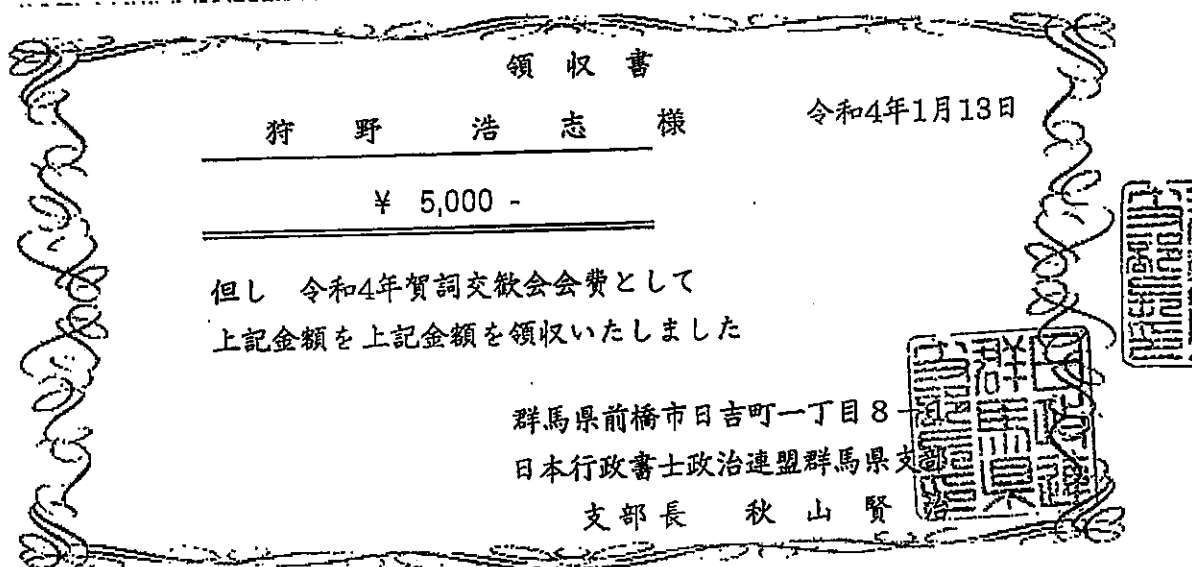 領収書
令和4年1月13日
狩野浩志様
¥ 5,000 -
但し 令和4年賀詞交歓会会費として
上記金額を上記金額を領収いたしました
群馬県前橋市日吉町一丁目8-
日本行政書士政治連盟群馬県支部
支部長 秋山賢治